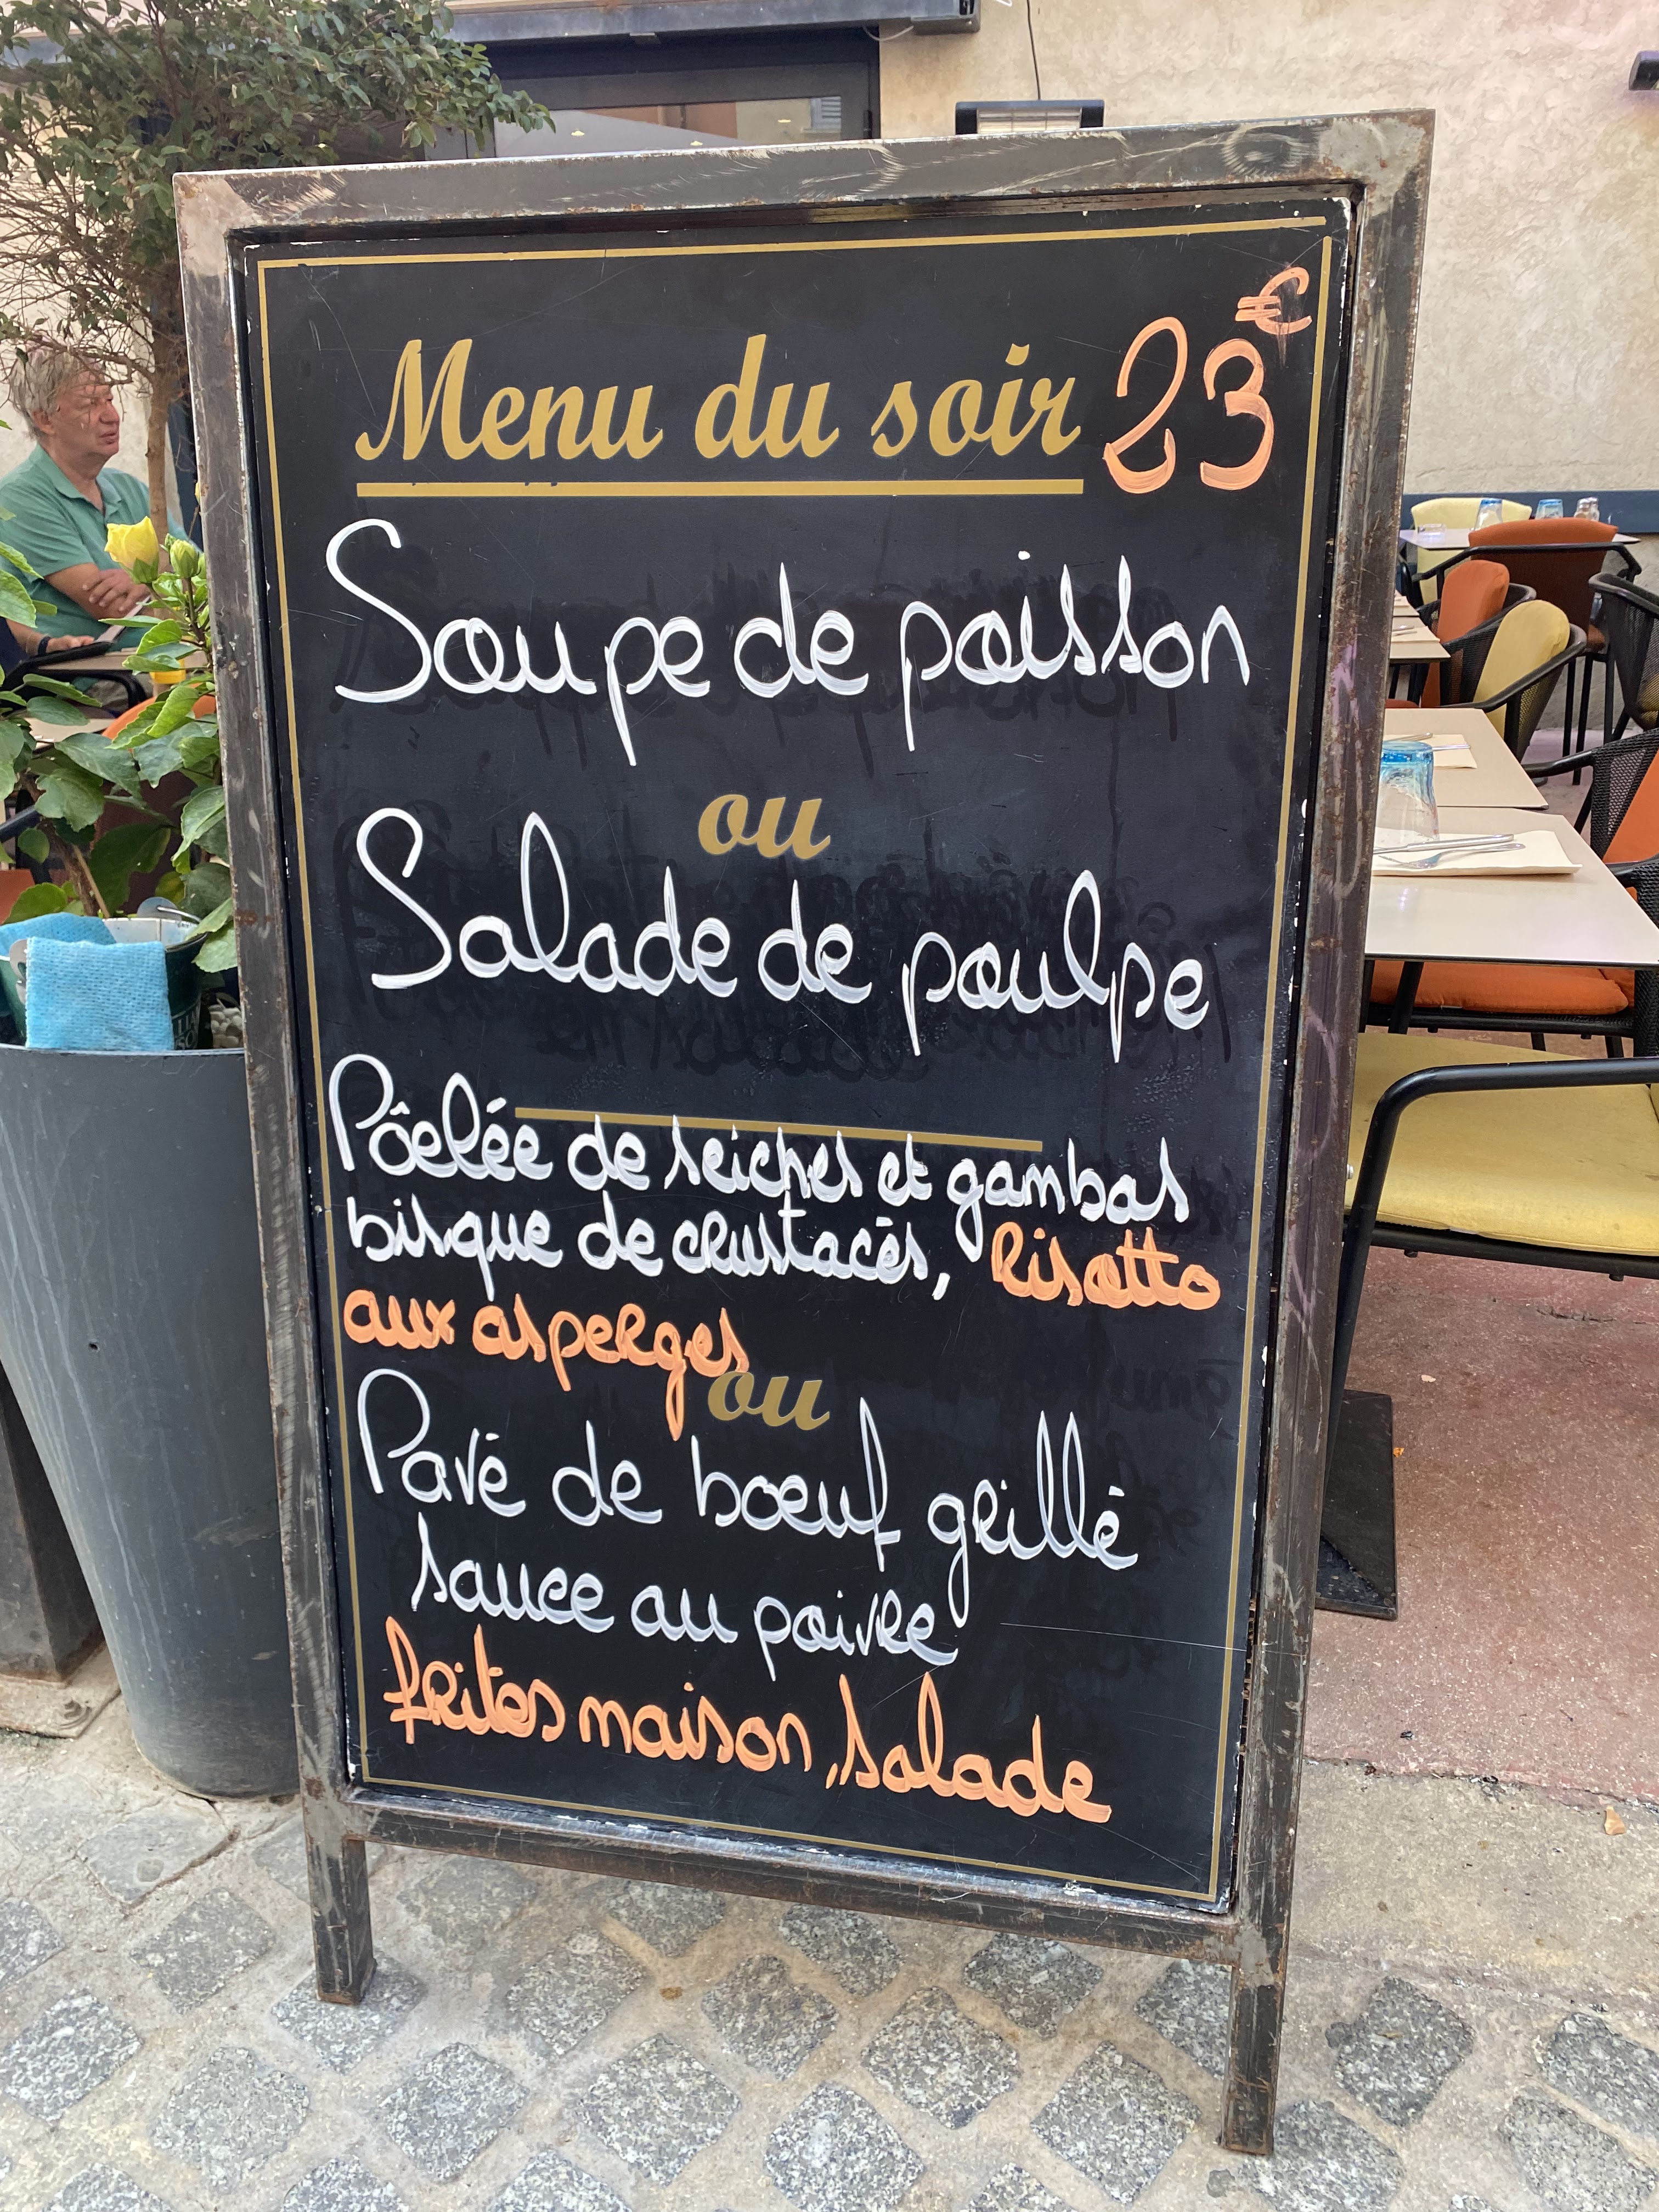 Menu du soir 23€
Soupe de poisson
ou
Salade de poulpe
Pôelée de seiches et gambas
bisque de crustacés, Risotto
aux asperges
ou
Pavé de bœuf grillé
sauce au poivre
frites maison, salade